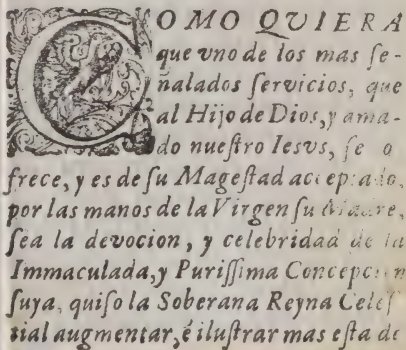 COMO QVIERA
que vno de los mas ſe-
ñalados ſervicios, que
al Hijo de Dios, y ama-
do nueſtro Iesvs, ſe o
frece, y es de ſu Mageſtad aceptado,
por las manos de la Virgen ſu Madre,
ſea la devocion, y celebridad de la
Immaculada, y Puriſſima Concepcion
ſuya, quiſo la Soberana Reyna Celeſ
tial augmentar, é iluſtrar mas eſta de